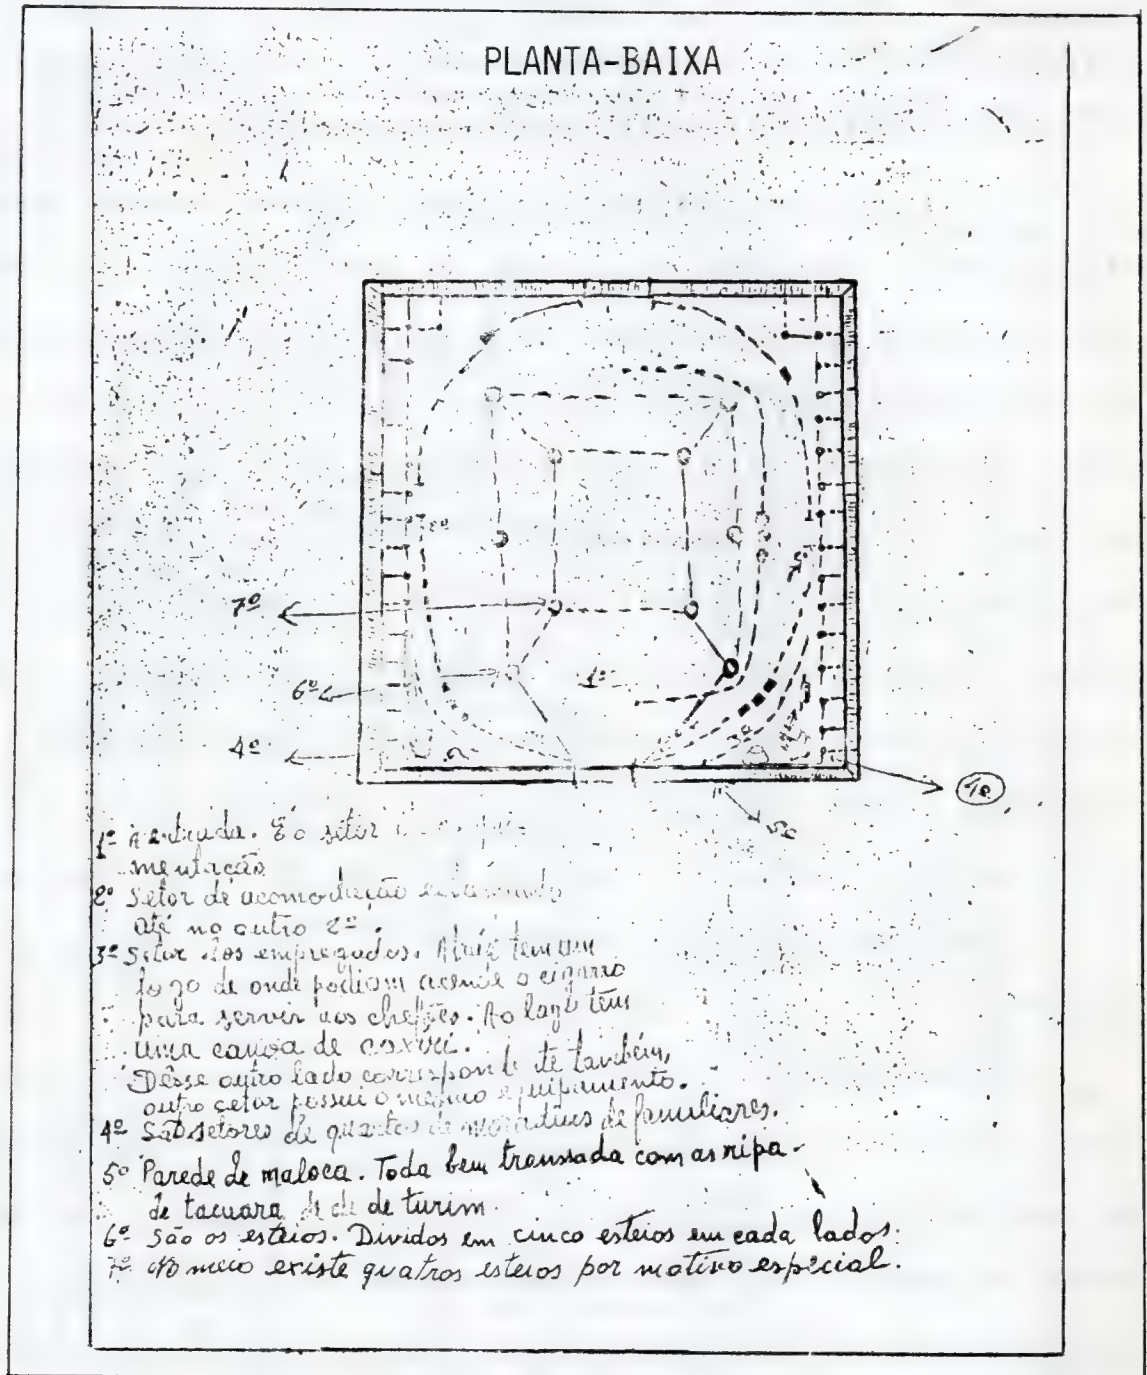 PLANTA-BAIXA
2º
2º
1º
3º
7º
6º
4º
5º
1º A entrada. É o setor
mentação
2º Setor de acomodação
até no outro 2º.
3º Setor dos empregados. Atráz tem um
fogo de onde podiam acende o cigarro
para servir aos chefões. Ao lago têm
uma canoa de caxiri.
Dêsse outro lado corresponde também,
outro cetor possui o mesmo equipamento.
4º São setores de quartos de de familiares.
5º Parede de maloca. Toda bem transsada com as ripa
de tacuara de turim.
6º São os esteios. Dividos em cinco esteios em cada lados:
7º No meio existe quatros esteios por motivo especial.